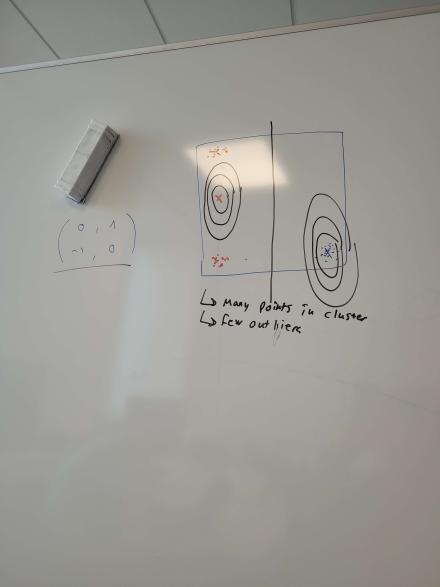 0 , 1
-1 , 0
↳ Many points in cluster
↳ Few outliers